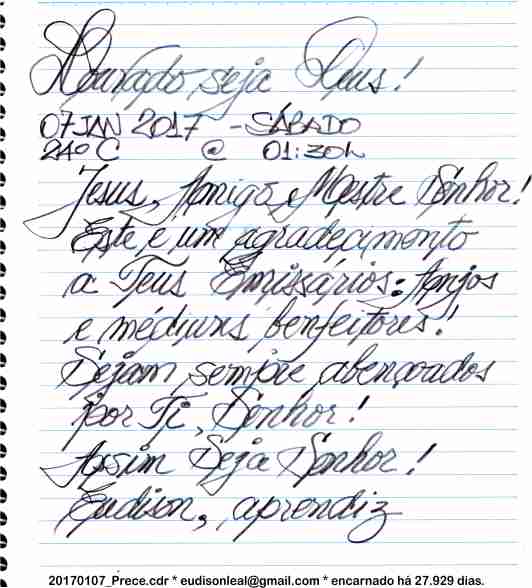 Louvado seja Deus!
07 JAN 2017 - SÁBADO
24º C @ 01:30h
Jesus, Amigo e Mestre Senhor!
Este é um agradecimento
a Teus Emissários: Anjos
e médiuns benfeitores!
Sejam sempre abençoados
por Ti, Senhor!
Assim Seja Senhor!
Eudison, aprendiz
20170107_Prece.cdr * eudisonleal@gmail.com * encarnado há 27.929 dias.